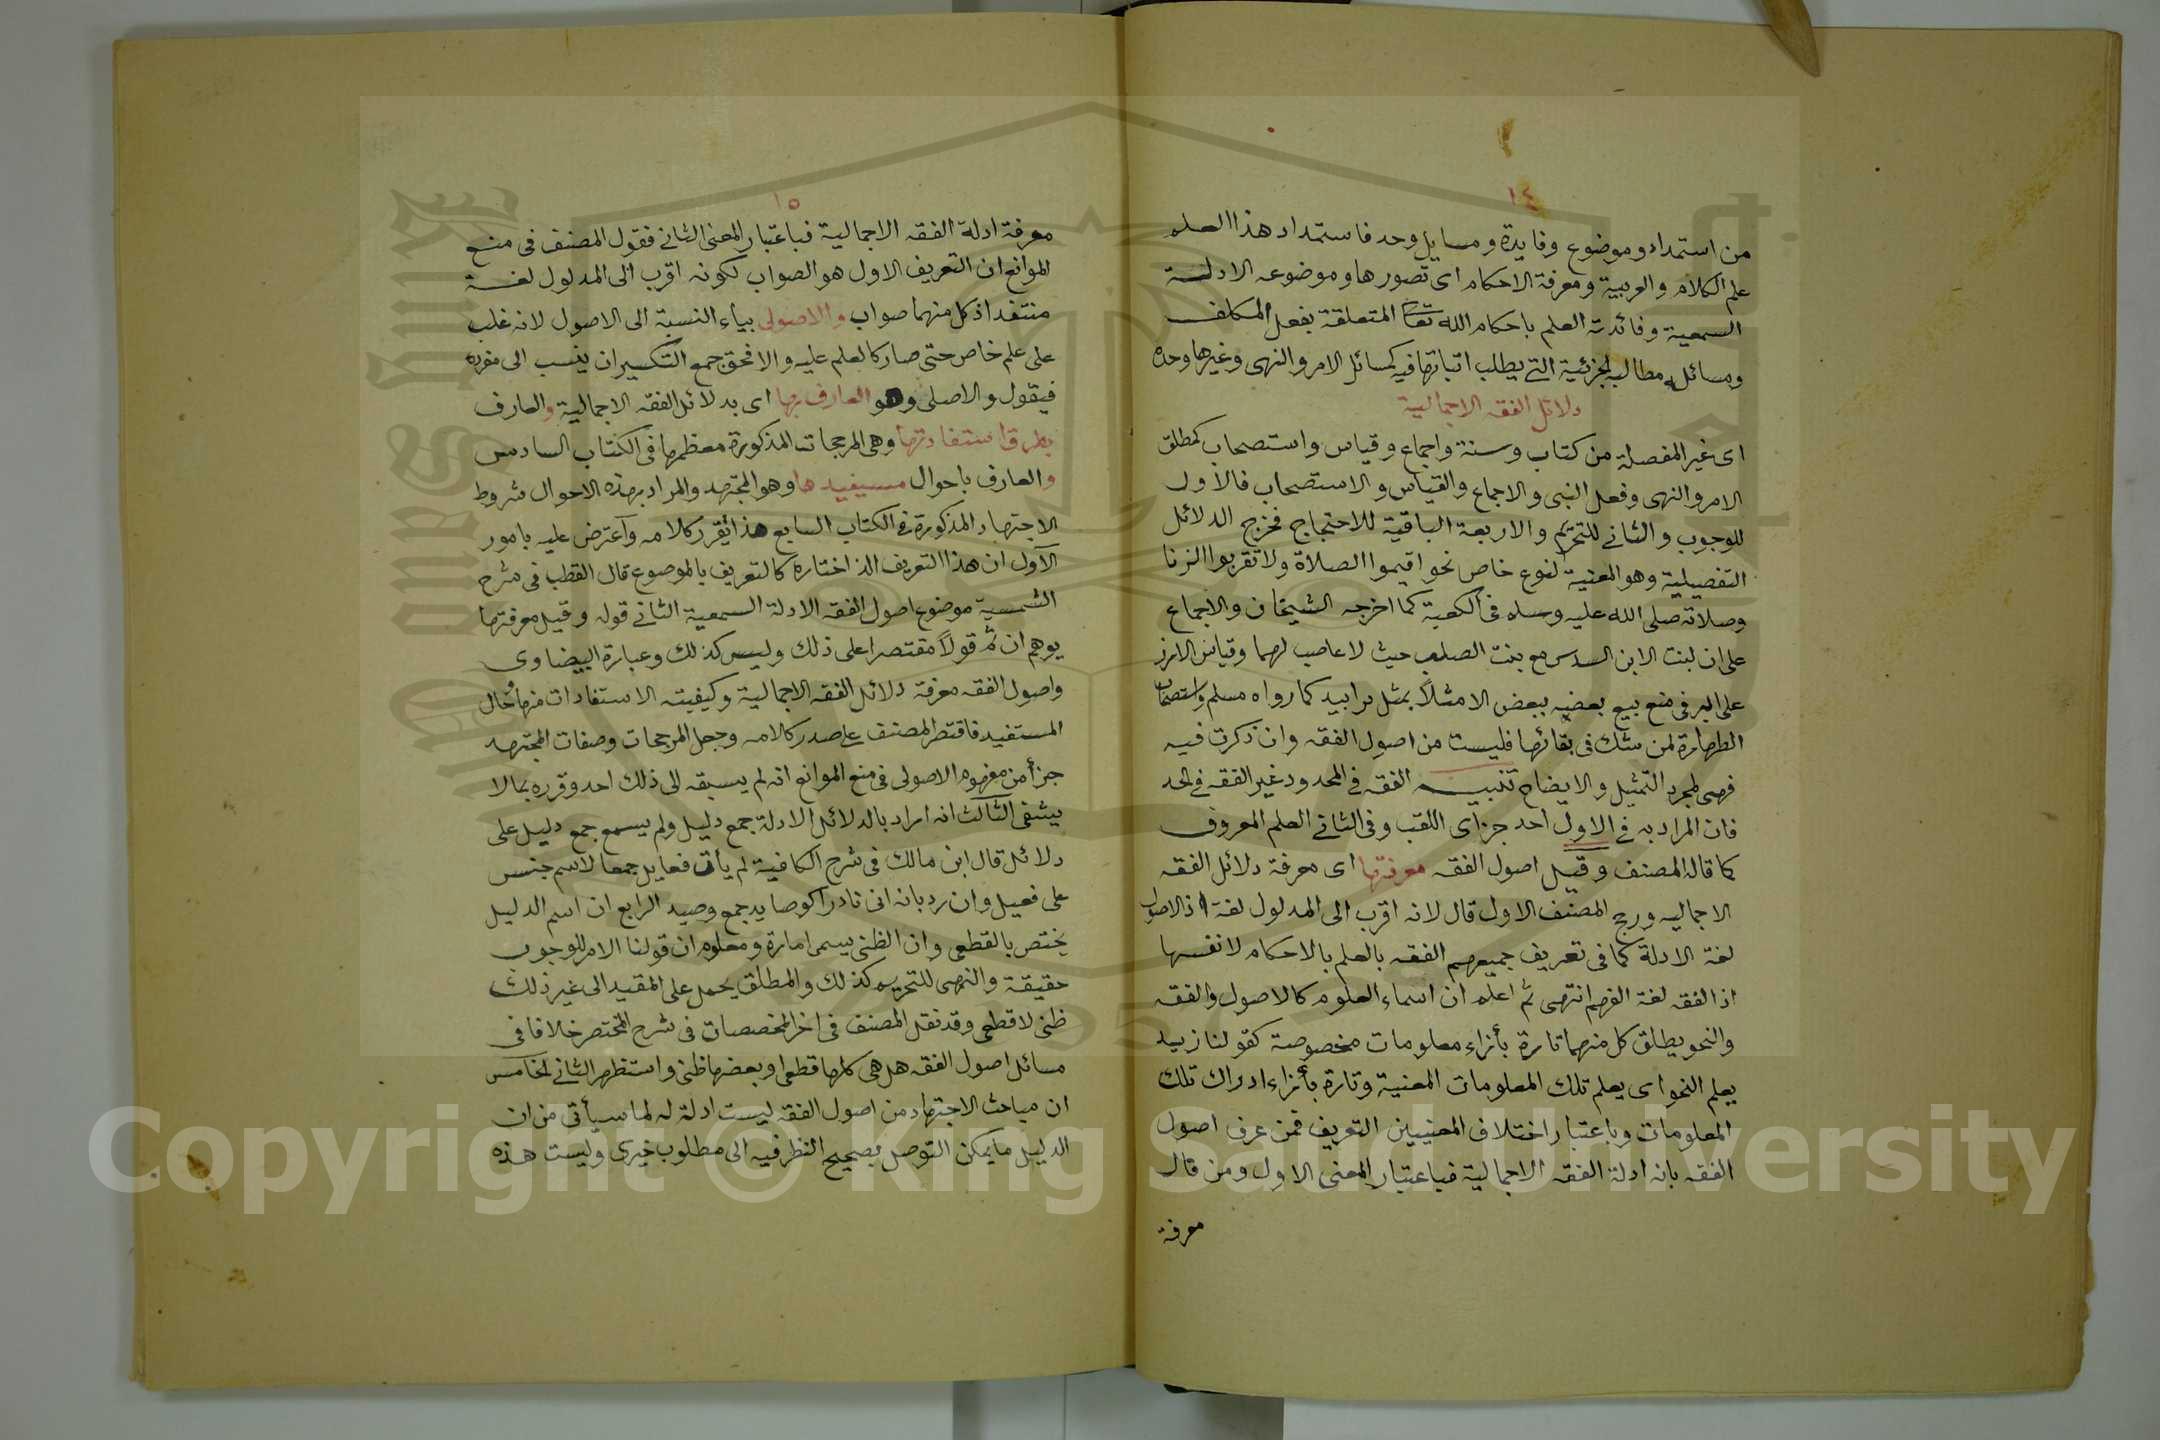 ١٤
من استمداد وموضوع وفايدة ومسايل وحد فاستمداد هذا العلم
علم الكلام والعربية ومعرفة الاحكام اى تصورها وموضوعه الادلة
السمعية وفائدته العلم باحكام الله تعالى المتعلقة بفعل المكلف
ومسائله مطالبه الجزئية التي يطلب اثباتها فيه كمسائل الامر والنهى وغيرها وحده
دلائل الفقه الاجمالية
اى غير المفصلة من كتاب وسنة واجماع وقياس واستصحاب كمطلق
الامر والنهى وفعل النبى والاجماع والقياس والاستصحاب فالاول
للوجوب والثانى للتحريم والاربعة الباقية للاحتجاج فخرج الدلائل
التفصيلية وهو المعنية لنوع خاص نحو اقيموا الصلاة ولا تقربوا الزنا
وصلاته صلى الله عليه وسلم فى الكعبة كما اخرجه الشيخان والاجماع
على ان لبنت الابن السدس مع بنت الصلب حيث لا عاصب لهما وقياس الارز
على البر فى منع بيع بعضه ببعض الا مثلاً بمثل يدا بيد كما رواه مسلم واستصحاب
الطهارة لمن شك فى بقائها فليست من اصول الفقه وان ذكرت فيه
فهى لمجرد التمثيل والايضاح تنبيه الفقه فى المحدود غير الفقه فى الحد
فان المراد به فى الاول احد جزاى اللقب وفى الثانى العلم المعروف
كما قاله المصنف وقيل اصول الفقه معرفتها اى معرفة دلائل الفقه
الاجماليه ورجح المصنف الاول قال لانه اقرب الى المدلول لغة اذ الاصول
لغة الادلة كما فى تعريف جميعهم الفقه بالعلم بالاحكام لا نفسها
اذ الفقه لغة الفهم انتهى ثم اعلم ان اسماء العلوم كالاصول والفقه
والنحو يطلق كل منها تارة بأزاء معلومات مخصوصة كقولنا زيد
يعلم النحو اى يعلم تلك المعلومات المعنية وتارة بأزاء ادراك تلك
المعلومات وباعتبار اختلاف المعنيين التعريف فمن عرف اصول
الفقه بانه ادلة الفقه الاجمالية فباعتبار المعنى الاول ومن قال
معرفة
١٥
معرفة ادلة الفقه الاجمالية فباعتبار المعنى الثانى فقول المصنف فى منع
الموانع ان التعريف الاول هو الصواب لكونه اقرب الى المدلول لغة
منتقد اذ كل منهما صواب والاصولى بياء النسبة الى الاصول لانه غلب
على علم خاص حتى صار كالعلم عليه والا فحق جمع التكسير ان ينسب الى مفرده
فيقول والاصلى وهو العارف بها اى بدلائل الفقه الاجمالية والعارف
بطرق استفادتها وهى المرجحات المذكورة معظمها فى الكتاب السادس
والعارف باحوال مستفيدها وهو المجتهد والمراد بهذه الاحوال شروط
الاجتهاد المذكورة فى الكتاب السابع هذا تقرير كلامه وآعترض عليه بامور
الآول ان هذا التعريف الذ اختاره كالتعريف بالموضوع قال القطب فى شرح
الشمسية موضوع اصول الفقه الادلة السمعية الثانى قوله وقيل معرفتها
يوهم ان ثم قولاً مقتصرا على ذلك وليس كذلك وعبارة البيضاوى
واصول الفقه معرفة دلائل الفقه الاجمالية وكيفيته الاستفادات منها وحال
المستفيد فاقتصر المصنف على صدر كلامه وجعل المرجحات وصفات المجتهد
جزأ من مفهوم الاصولى فى منع الموانع انه لم يسبقه الى ذلك احد وقرره بما لا
يشفى الثآلث انه اراد بالدلائل الادلة جمع دليل ولم يسمع جمع دليل على
دلائل قال ابن مالك فى شرح الكافية لم يأت فعايل جمعا لاسم جنس
على فعيل وان رد بانه اتى نادرا كوصايد جمع وصيد الرابع ان اسم الدليل
يختص بالقطعى وان الظنى يسمى امارة ومعلوم ان قولنا الامر للوجوب
حقيقة والنهى للتحريم كذلك والمطلق يحمل على المقيد الى غير ذلك
ظنى لا قطعى وقد نقل المصنف فى اخر المخصصات فى شرح المختصر خلافا فى
مسائل اصول الفقه هل هى كلها قطعى او بعضها ظنى واستظهر الثانى الخامس
ان مباحث الاجتهاد من اصول الفقه ليست ادلة له لما سيأتى من ان
الدليل ما يمكن التوصل بصحيح النظر فيه الى مطلوب خبرى وليست هذه
Copyright © King Saud University